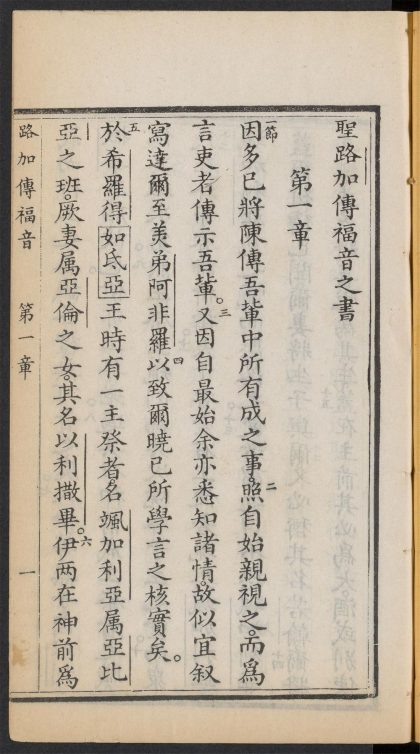 聖路加傳福音之書
第一章
一節因多已將陳傳吾輩中所有成之事。二照自始親視之。而為
言吏者傳示吾輩。三又因自最始余亦悉知諸情。故似宜敘
寫達爾至美弟阿非羅。四以致爾曉已所學言之核實矣。
五於希羅得如氐亞王時有一主祭者。名颯加利亞屬亞比
亞之班。厥妻屬亞倫之女。其名以利撒畢。六伊两在神前為
路加傳福音 第一章 一